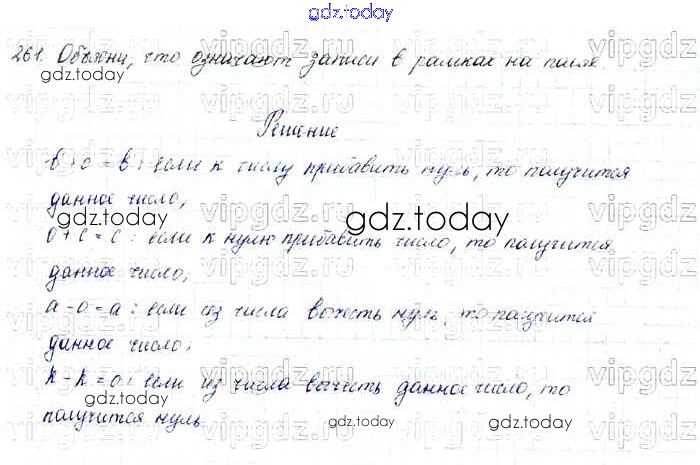 gdz.today
261. Объясни, что означают записи в рамках на полях
gdz.today
Решение
в+о=в: если к числу прибавить нуль, то получится
данное число;
gdz.today
о+с=с: если к нулю прибавить число, то получится
данное число;
а-о=а: если из числа вычесть нуль, то получится
данное число;
к-к=о: если из числа вычесть данное число, то
получится нуль
gdz.today
gdz.today
vipgdz.ru